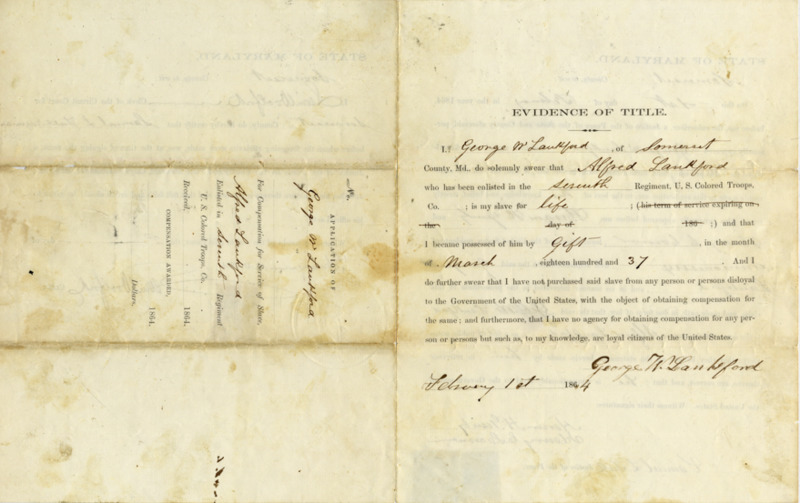 No.
APPLICATION OF
George W Lankford
For Compensation for Service of Slave,
Alfred Lankford
Enlisted in Seventh Regiment
U. S. Colored Troops, Co.
Received, 1864.
COMPENSATION AWARDED,
Dollars.
1864.
EVIDENCE OF TITLE.
I, George W Lankford, of Somerset
County, Md., do solemnly swear that Alfred Lankford
who has been enlisted in the Seventh Regiment, U. S. Colored Troops,
Co. ; is my slave for life ; (his term of service expiring on
the day of 186 ;) and that
I became possessed of him by Gift, in the month
of March, eighteen hundred and 37. And I
do further swear that I have not purchased said slave from any person or persons disloyal
to the Government of the United States, with the object of obtaining compensation for
the same; and furthermore, that I have no agency for obtaining compensation for any per-
son or persons but such as, to my knowledge, are loyal citizens of the United States.
George W. Lankford
February 1st 1864